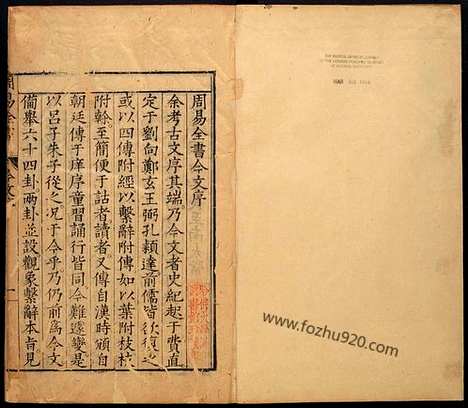 周易全書今文序
余考古文序其端乃今文者史紀起于費直
定于劉向鄭玄王弼孔穎達前儒皆欲復之
或以四傳附經以繫辭附傳如以葉附枝枝
附榦至簡便于詁者讀者又傳自漢時頒自
朝廷傳于庠序童習誦行皆同今難遽變是
以呂子朱子從之况于今乎乃仍前爲今文
備舉六十四卦兩卦並設觀象繫辭本旨見
www.fozhu920.com